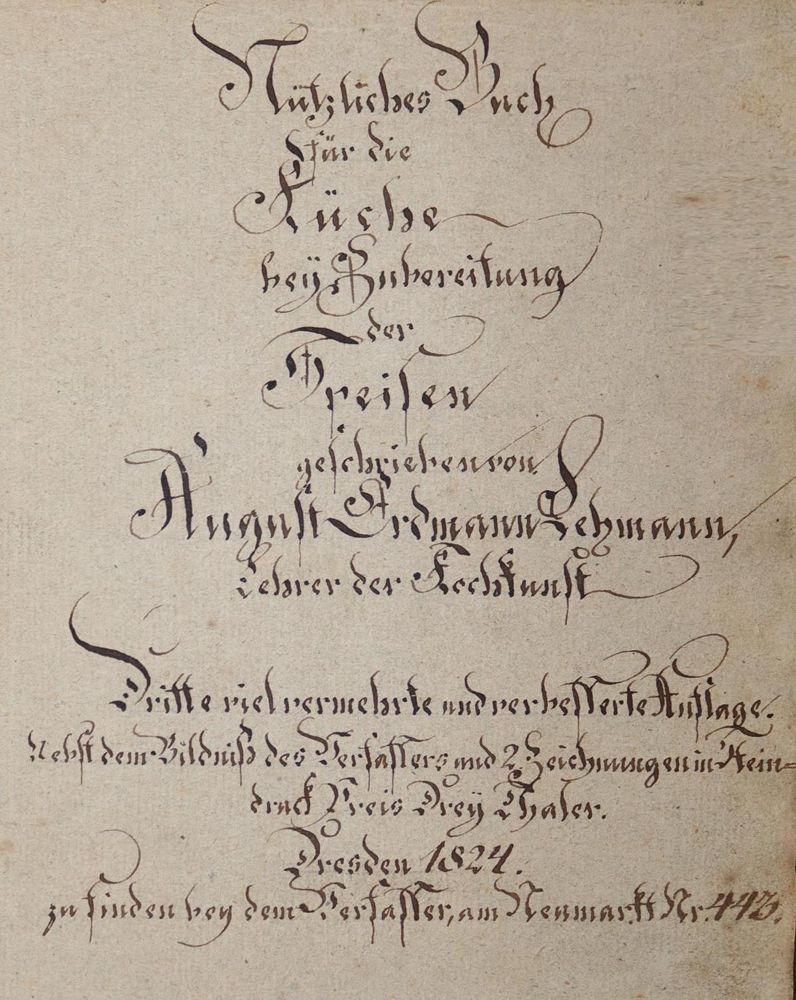 Nützliches Buch
für die
Küche
bey Zubereitung
der
Speisen
geschrieben von
August Erdmann Lehmann,
Lehrer der Kochkunst
Dritte viel vermehrte und verbesserte Auflage.
Nebst dem Bildniß des Verfassers und 2 Zeichnungen in Stein=
druck Preis Drey Thaler.
Dresden 1824.
zu finden bey dem Verfasser, am Neumarkt Nr. 443.